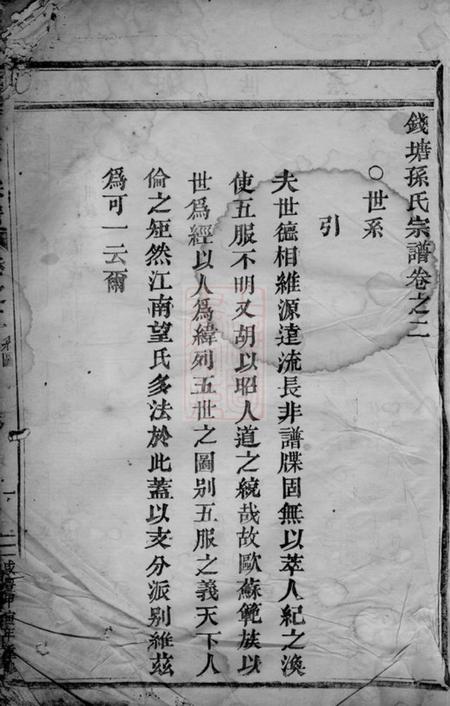 錢塘孫氏宗譜卷之二
○世系
引
夫世德相維源遠流長非譜牒固無以萃人紀之渙
使五服不明又胡以昭人道之統哉故歐蘇範族以
世爲經以人爲緯列五世之圖別五服之義天下人
倫之矩然江南望氏多法於此蓋以支分派別維茲
爲可一云爾